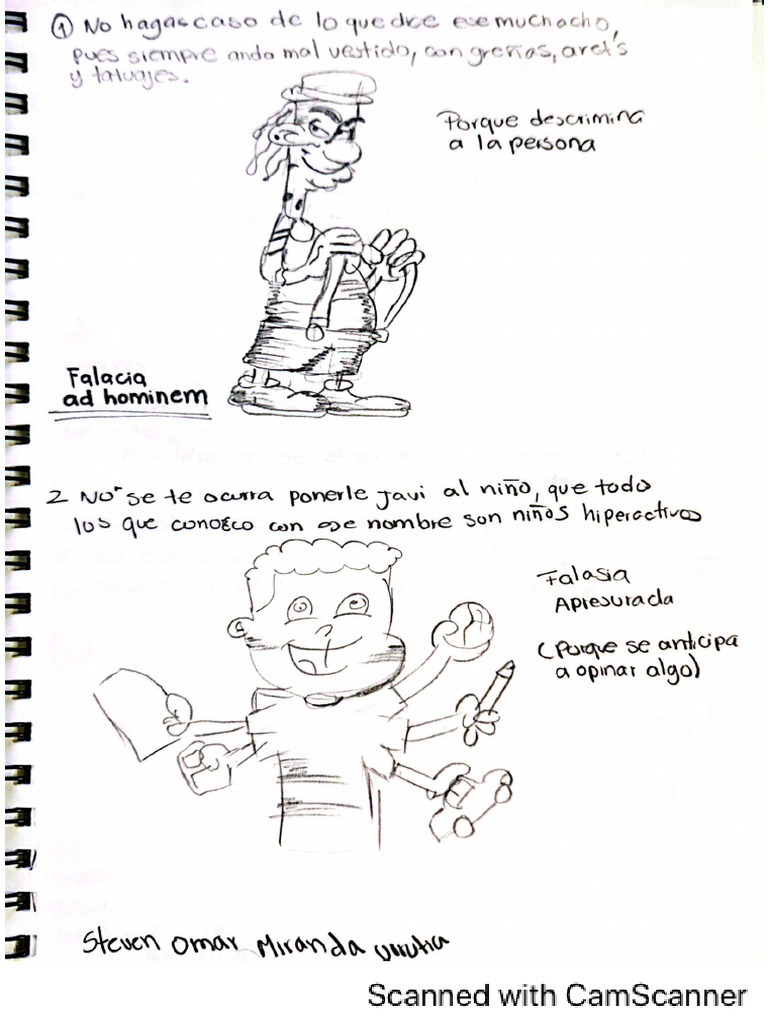 ① No hagas caso de lo que dice ese muchacho,
pues siempre anda mal vestido, con greñas, aret's
y tatuajes.
Porque descrimina
a la persona
Falacia
ad hominem
2 No se te ocurra ponerle Javi al niño, que todo
los que conozco con ese nombre son niños hiperactivos
Falasia
Apresurada
(Porque se anticipa
a opinar algo)
Steven Omar Miranda Urrutia
Scanned with CamScanner